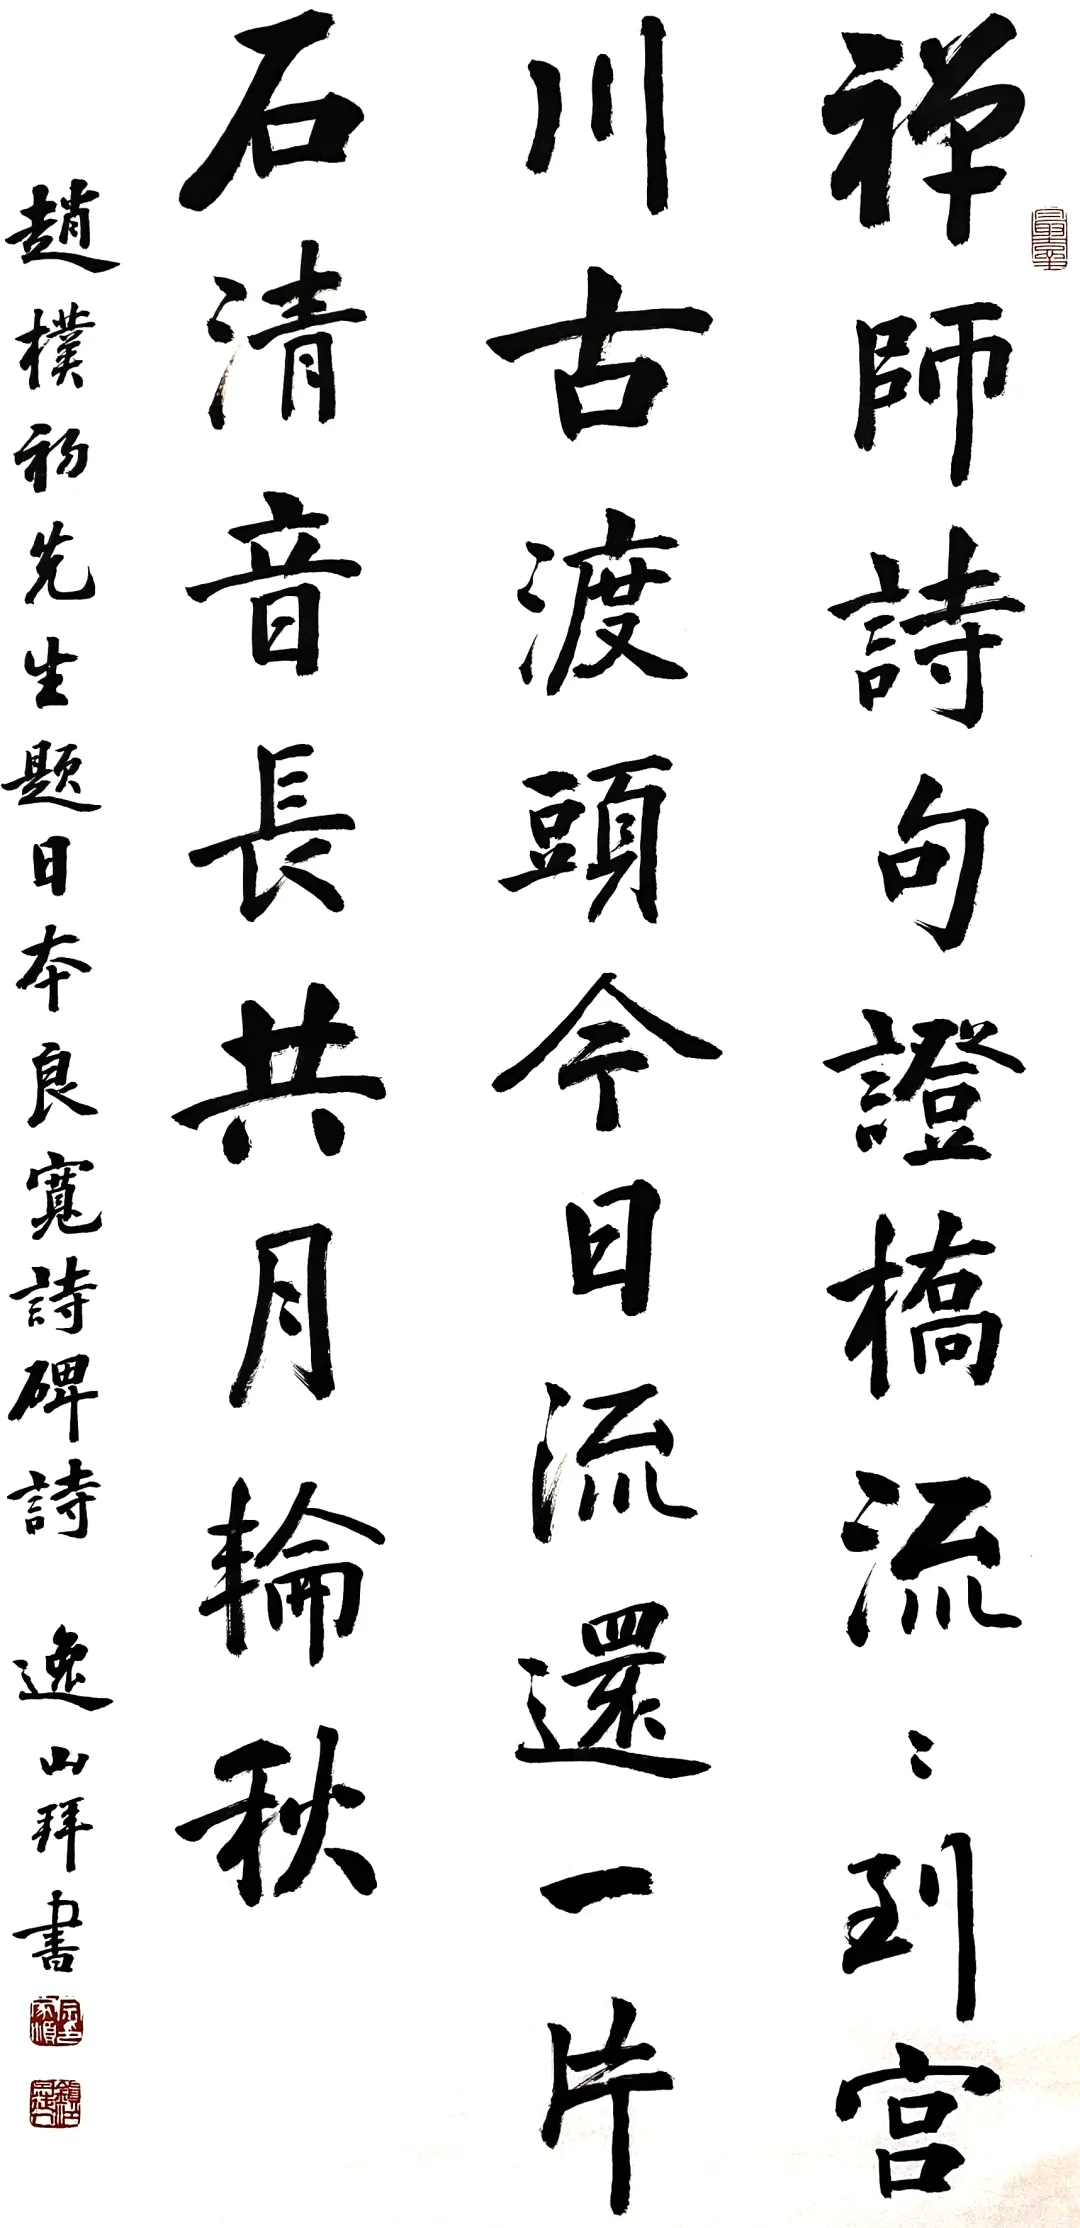 禅師詩句證橋流〻到宫
川古渡頭今日流還一片
石清音長共月輪秋
趙樸初先生題日本良寬詩碑詩 逸山拜書